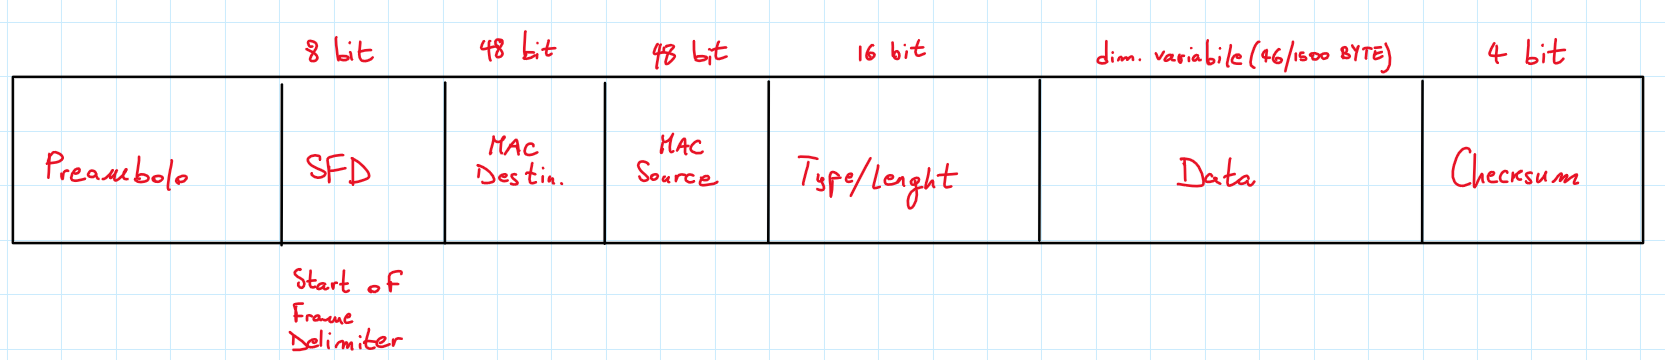 8 bit
48 bit
48 bit
16 bit
dim. variabile (46/1500 BYTE)
4 bit
Preambolo
SFD
MAC
Destin.
MAC
Source
Type/Lenght
Data
Checksum
Start of
Frame
Delimiter